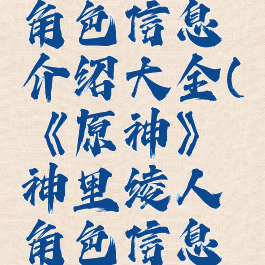 角色信息
介绍大全(
《原神》
神里绫人
角色信息